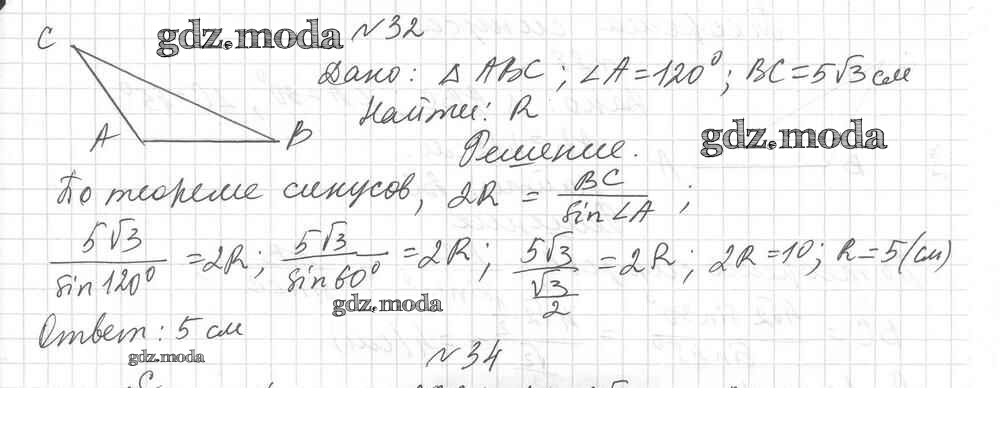 C
gdz.moda №32
Дано: △ ABC; ∠A=120⁰; BC=5√3 см
Найти: R
A B
gdz.moda
Решение.
По теореме синусов, 2R = BC / sin∠A ;
5√3 / sin 120⁰ = 2R; 5√3 / sin 60⁰ = 2R; 5√3 / (√3 / 2) = 2R; 2R=10; R=5(см)
gdz.moda
Ответ: 5 см
gdz.moda
№34